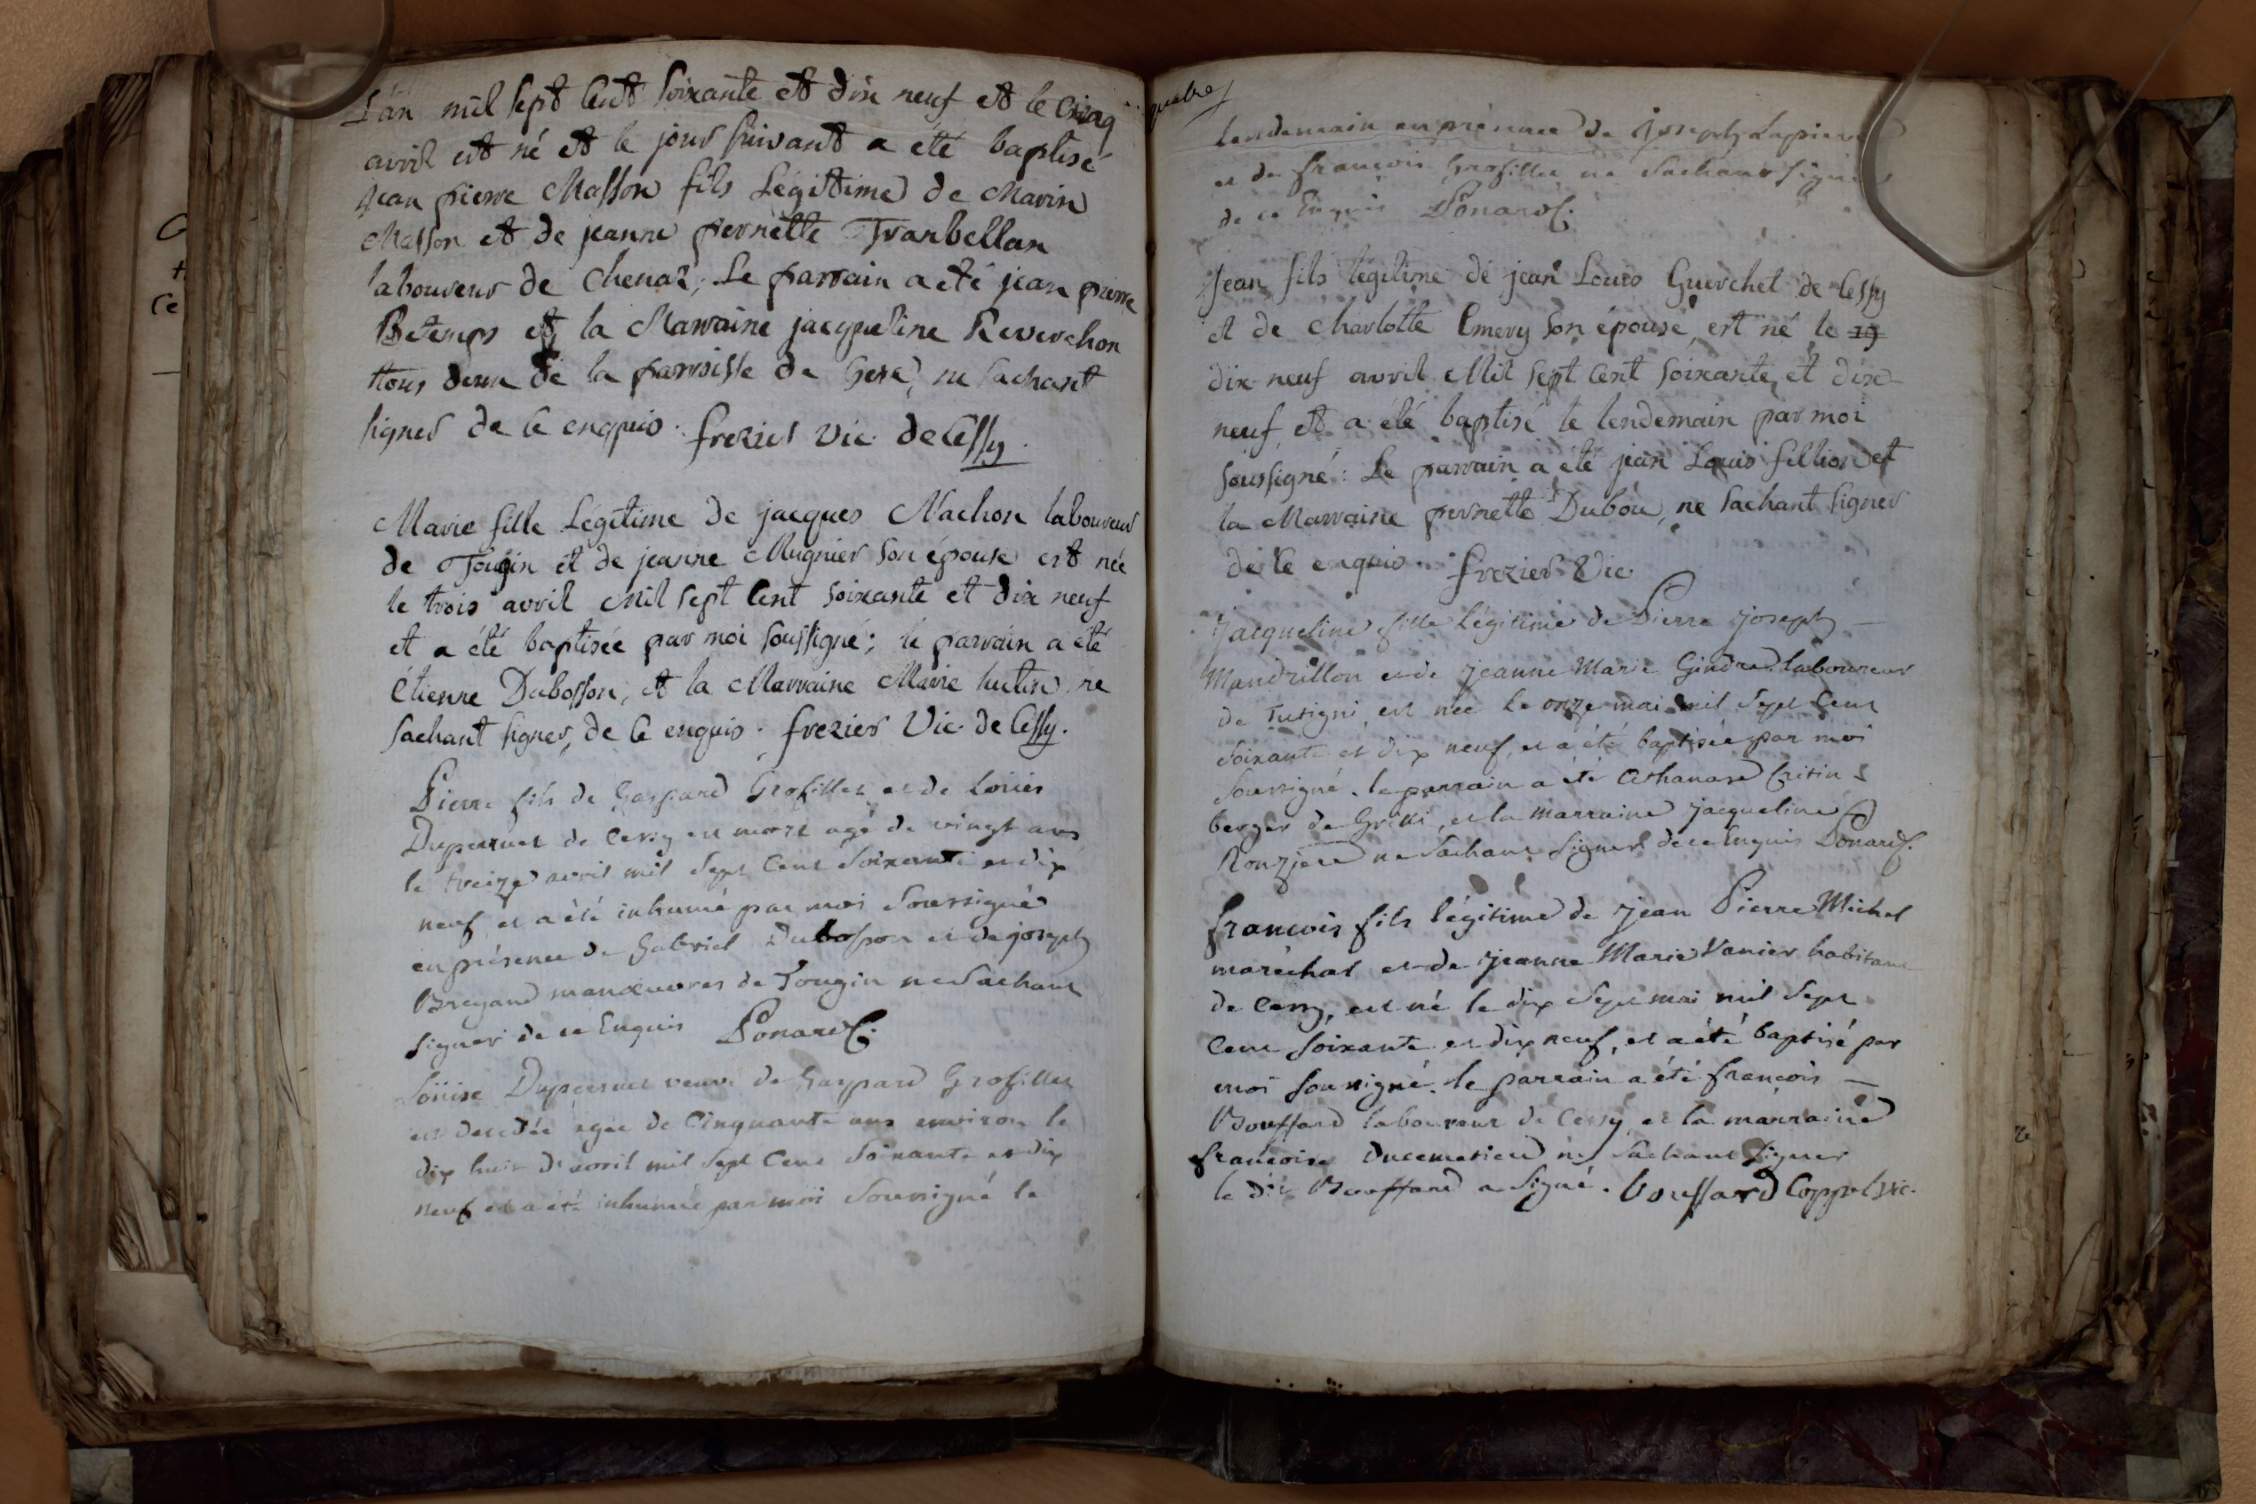 L'an mil sept Cent Soixante et dix neuf et le cinq
avril est né et le jour suivant a été baptisé
jean pierre Masson fils Légitime de Marin
Masson et de jeanne pernette Tranbellan
laboureur de Chenaz; Le parrain a eté jean pierre
Betemps et la Marraine jacqueline Reverchon
tous deux de la parroisse de Gex, ne sachant
signer de ce enquis. frezier Vic. de Cessy.
Marie fille Légitime de jacques Nachon laboureur
de Tougin et de jeanne Mugnier son épouse est née
le trois avril Mil sept Cent soixante et dix neuf
et a été baptisée par moi soussigné; le parrain a été
étienne Dubosson, et la Marraine Marie hutin, ne
sachant signer, de ce enquis. frezier Vic. de Cessy.
Pierre fils de Gaspard Grosfillex et de Loüise
Duperruet de Cessy est mort agé de vingt ans
le treize avril mil sept cent soixante et dix
neuf et a été inhumé par moi Soussigné
en présence de Gabriel Dubosson et de joseph
Breyand manœuvres de Tougin ne Sachant
Signer de ce Enquis Ponard C.
Loüise Duperruet veuve de Gaspard Grosfillex
est decedée agée de Cinquante ans environ le
dix huit d'avril mil sept Cent Soixante et dix
neuf et a été inhumée par moi Soussigné le
quatre
lendemain en présence de Joseph Lapierre
et de françois Grosfillex ne Sachant Signer
de ce Enquis Ponard C.
Jean fils légitime de jean Louis Guerchet de Cessy
et de Charlotte Emery son épouse, est né le 19
dix-neuf avril Mil sept Cent soixante, et dix
neuf, et a été baptisé le lendemain par moi
soussigné: Le parrain a été jean Louis fillion et
la Marraine pernette Dubou, ne sachant signer
de ce enquis. frezier Vic.
Jacqueline fille Légitime de Pierre joseph
Mandrillon et de jeanne Marie Gindre laboureur
de Tutigni, est née le onze mai mil Sept Cent
Soixante et dix neuf, et a été baptisée par moi
Soussigné. le parrain a été Athanase Critin
berger de Grilli, et la marraine jacqueline
Ronzjere ne Sachant Signer de ce Enquis Ponard C.
françois fils légitime de jean Pierre Michel
maréchal et de jeanne Marie Vanier habitant
de Cessy, est né le dix Sept mai mil Sept
Cent Soixante et dix neuf, et a été baptisé par
moi Soussigné. le parrain a été françois
Bouffard laboureur de Cessy, et la marraine
françoise Ducemetiere ne Sachant Signer
le dit Bouffard a Signé. bouffard Coppel vic.